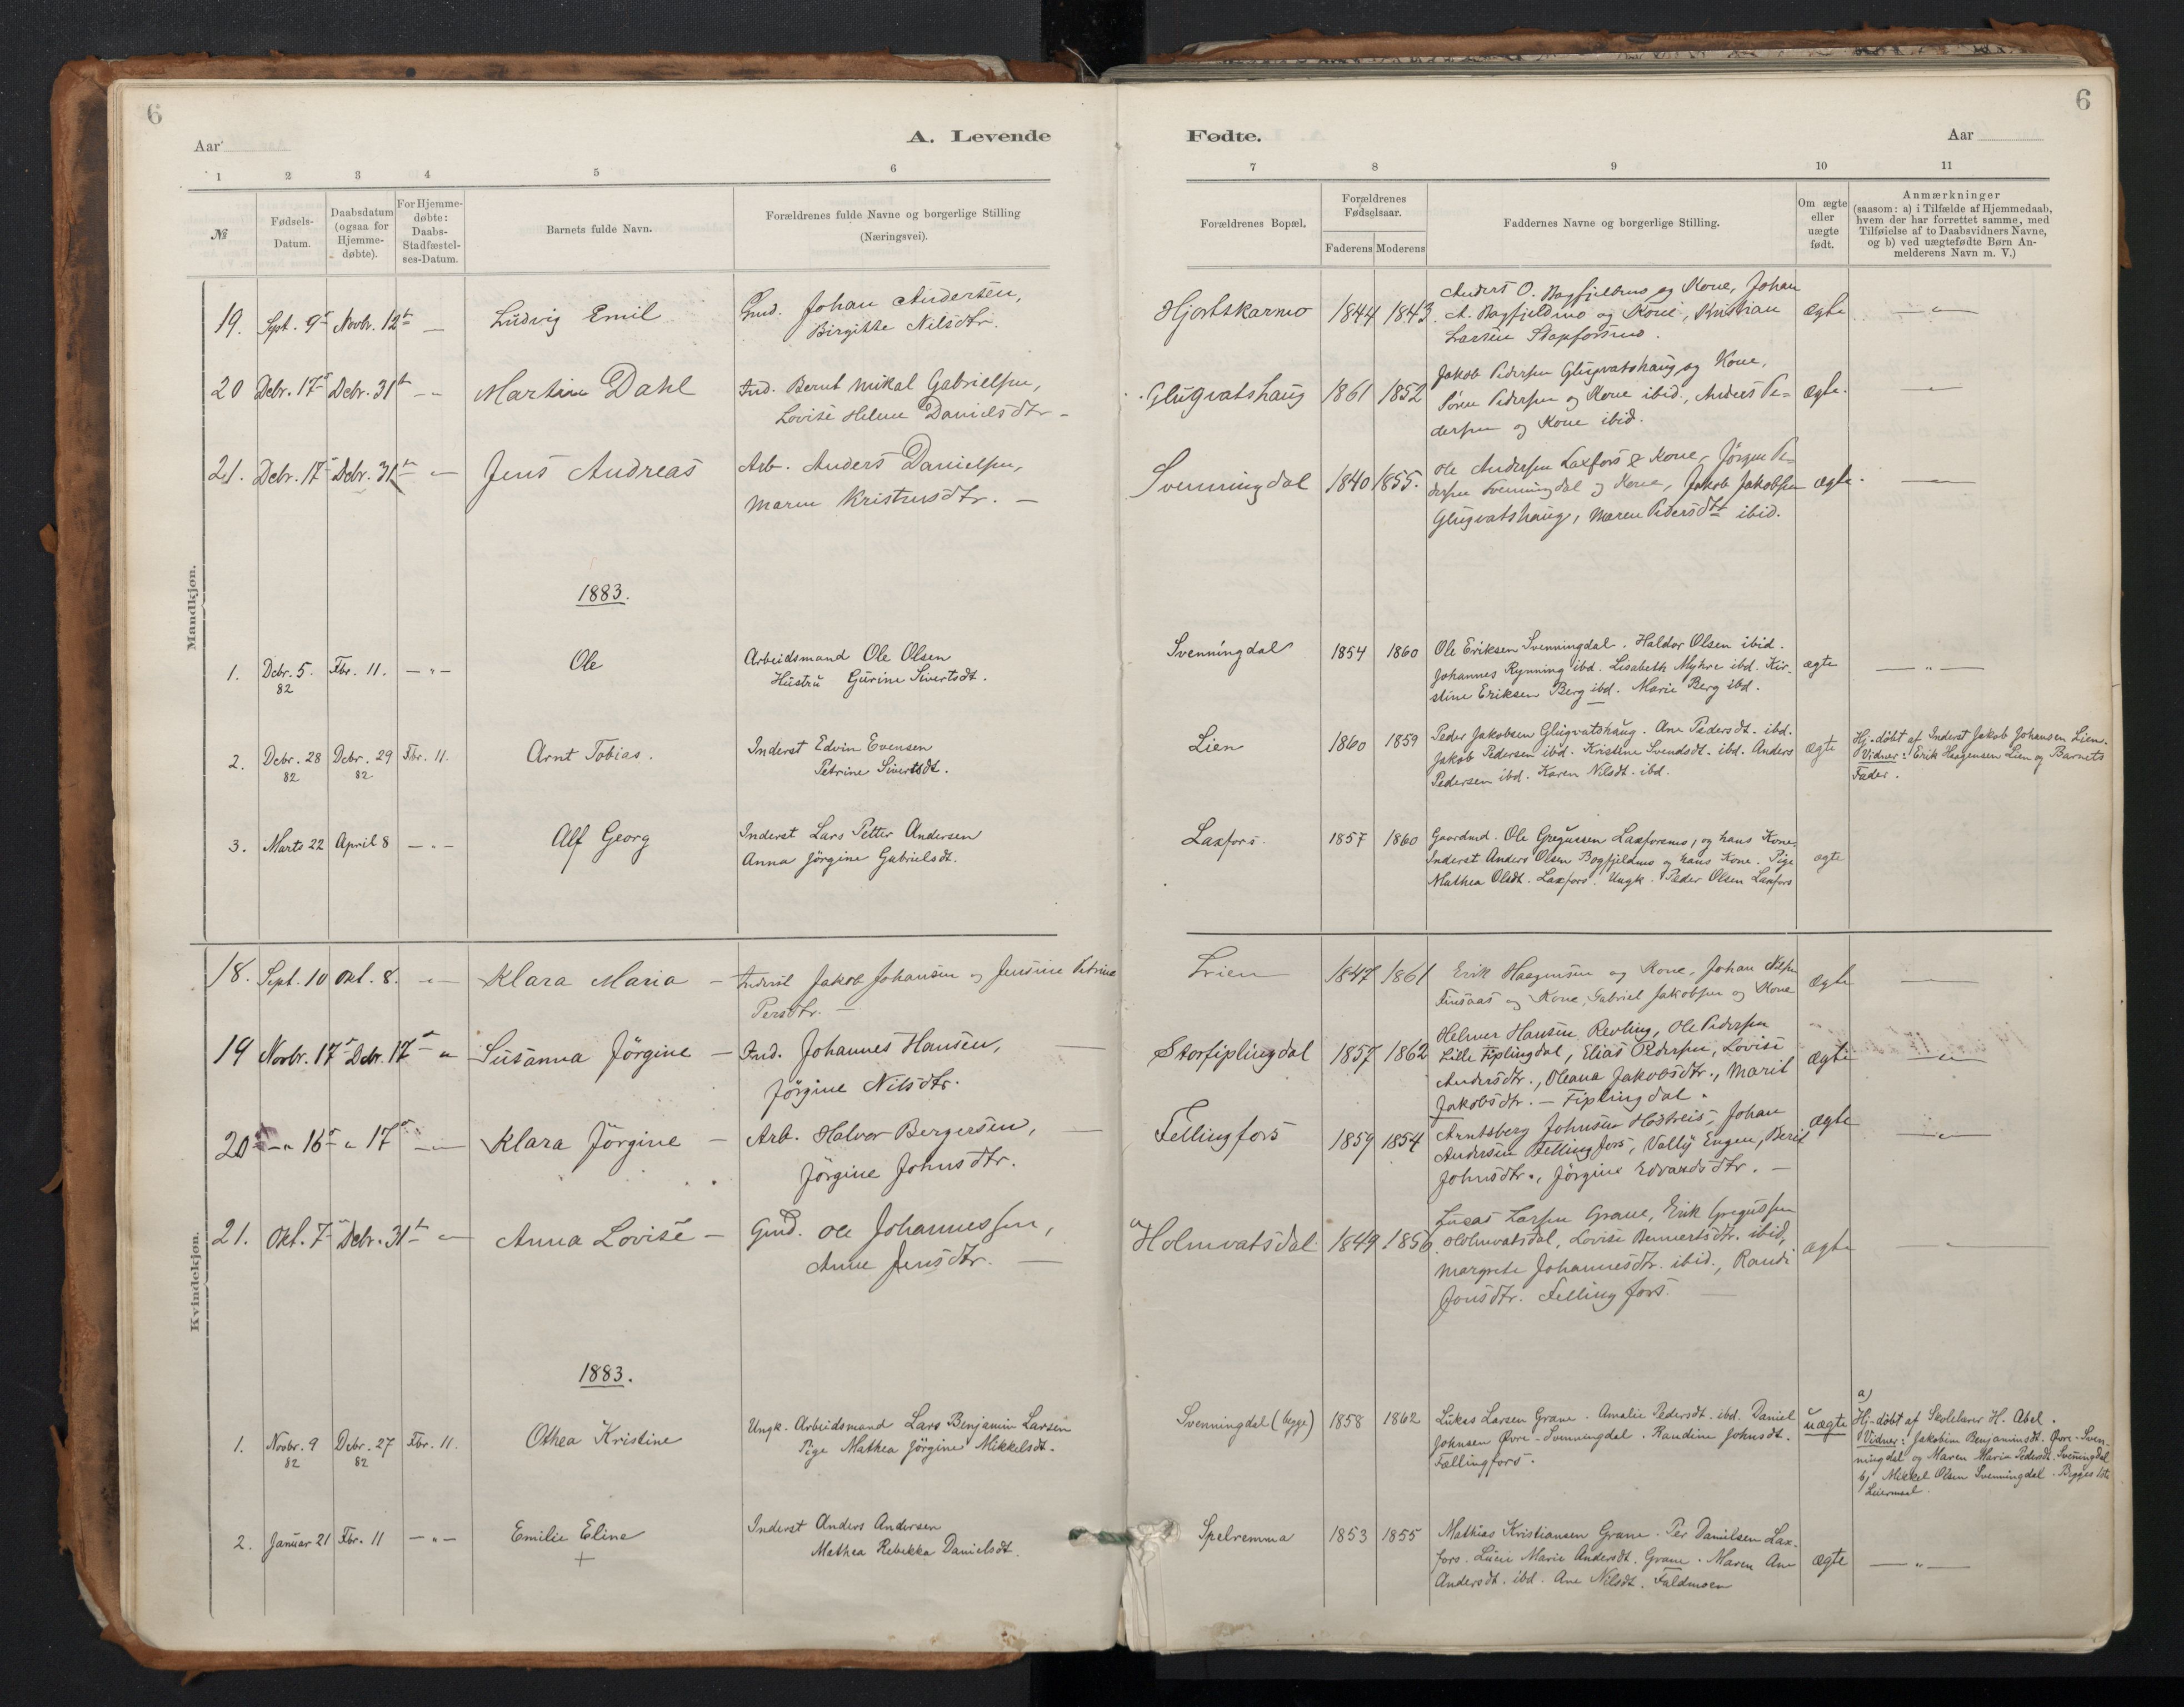 6
Aar
A. Levende
1 2 3 4 5 6
№
Fødsels-
Datum.
Daabsdatum
(ogsaa for
Hjemme-
døbte).
For Hjemme-
døbte:
Daabs-
Stadfæstel-
ses-Datum.
Barnets fulde Navn.
Forældrenes fulde Navne og borgerlige Stilling
(Næringsvei).
Mandkjøn.
19. Sept. 9 Novbr. 12te — Ludvig Emil Gmd. Johan Andersen,
Birgitte Nilsdtr.
20 Debr. 17 Debr. 31te - " Martin Dahl Ind. Bernt Mikal Gabrielsen,
Lovise Helene Danielsdtr -
21. Debr. 17 Debr. 31te " Jens Andreas Arb. Anders Danielsen,
Maren Kristensdtr. —
1883.
1. Debr. 5. Fbr. 11. — " — Ole Arbeidsmand Ole Olsen
82 Hustru Gjurine Sivertsdt.
2. Debr. 28 Debr. 29 Fbr. 11. Arnt Tobias. Inderst Edvin Evensen
82 82 Petrine Sivertsdt.
3. Marts 22 April 8 — " — Alf Georg Inderst Lars Petter Andersen
Anna Jörgine Gabrielsdt.
Kvindekjøn.
18. Sept. 10 Okt. 8. - " - Klara Maria — Inderst Jakob Johansen og Jensine Petrine
Persdtr. —
19 Novbr. 17 Debr. 17 " Susanna Jörgine — Ind. Johannes Hansen, —
Jörgine Nilsdtr.
20 - " 16 " 17 - " - Klara Jörgine — Arb. Halvor Bergersen, —
Jörgine Johnsdtr.
21. Okt. 7 Debr. 31te " Anna Lovise — Gmd. Ole Johannessen,
Anne Jensdtr. —
1883.
1. Novbr. 9 Debr. 27 Fbr. 11. Othea Kristine Ungk. Arbeidsmand Lars Benjamin Larsen
82 82 Pige Mathea Jörgine Mikkelsdt.
2. Januar 21 Fbr. 11 — " — Emilie Eline Inderst Anders Andersen
+ Mathea Rebekka Danielsdt.
6
Fødte.
Aar
7 8 9 10 11
Forældrenes Bopæl.
Forældrenes
Fødselsaar.
Faderens Moderens
Faddernes Navne og borgerlige Stilling.
Om ægte
eller
uægte
født.
Anmærkninger
(saasom: a) i Tilfælde af Hjemmedaab,
hvem der har forrettet samme, med
Tilføielse af to Daabsvidners Navne,
og b) ved uægtefødte Børn An-
melderens Navn m. V.)
Hjortskarmo 1844 1843. Anders O. Bagfjeldmo og Kone, Johan
A. Bagfjeldmo og Kone, Kristian ægte — " —
Larsen
Glugvatshaug 1861 1852 Jakob Pedersen Glugvatshaug og Kone,
Sören Pedersen og Kone ibid., Anders Pe= ægte. — " —
dersen og Kone ibid.
Svenningdal 1840 1855. Ole Andersen Laxfors & Kone, Jörgen Pe=
dersen Svenningdal og Kone, Jakob Jakobsen ægte. — " —
Glugvatshaug, Maren Pedersdtr ibid.
Svenningdal 1854 1860 Ole Eriksen Svenningdal. Haldor Olsen ibid.
Johannes Rynning ibd. Lisabeth Myhre ibd. Kir- ægte — " —
stine Eriksen Berg ibd. Marie Berg ibd.
Lien 1860 1859 Peder Jakobsen Glugvatshaug. Ane Pedersdt. ibd.
Jakob Pedersen ibd. Kristine Svendsdt. ibd. Anders ægte
Pedersen ibd. Karen Nilsdt. ibd.
Hj-döbt af Inderst Jakob Johansen Lien.
Vidner: Erik Haagensen Lien og Barnets
Fader.
Laxfors. 1857 1860 Gaardmd. Ole Gregussen Laxforsmo, og hans Kone.
Inderst Anders Olsen Bagfjeldmo og hans Kone. Pige ægte
Mathea Olsdt. Laxfors. Ungk. Peder Olsen Laxfors
Lien 1847 1861 Erik Haagensen og Kone, Johan Nilsen
og Kone, Gabriel Jakobsen og Kone ægte
Storfiplingdal 1857 1862 Helmer Hansen Revling, Ole Pedersen
Lille Fiplingdal, Elias Pedersen, Lovise ægte — " —
Andersdtr., Oleana Jakobsdtr., Marit
Jakobsdtr. — Fiplingdal.
Fellingfors 1859 1854 Arntsberg Johnsen, Johan ægte
Andersen Fellingfors, Engen, Berit — " —
Johnsdtr., Jörgine Edvardsdtr. —
Holmvatsdal 1849 1856. Lucas Larsen Grane, Erik Gregussen
Holmvatsdal, Lovise Bennertsdtr. ibid, ægte
Margrete Johannesdtr. ibid., Randi
Jonsdtr. Fellingfors. —
Svenningdal (begge) 1858 1862 Lukas Larsen Grane. Amalie Pedersdt. ibd. Daniel uægte
Johnsen Övre-Svenningdal. Randine Johnsdt.
Fællingfors.
a)
Hj-döbt af Skolelærer H. Abel.
Vidner: Jakobine Benjaminsdt. Övre-Sven-
ningdal og Maren Marie Pedersdt. Svenningdal
b) Mikkel Olsen Svenningdal. Begges 1ste
Leiermaal.
Spelremma 1853 1855 Mathias Kristiansen Grane. Per Danielsen Lax-
fors. Lucie Marie Andersdt. Grane. Maren Ane ægte — " —
Andersdt. ibd. Ane Nilsdt. Faldmoen